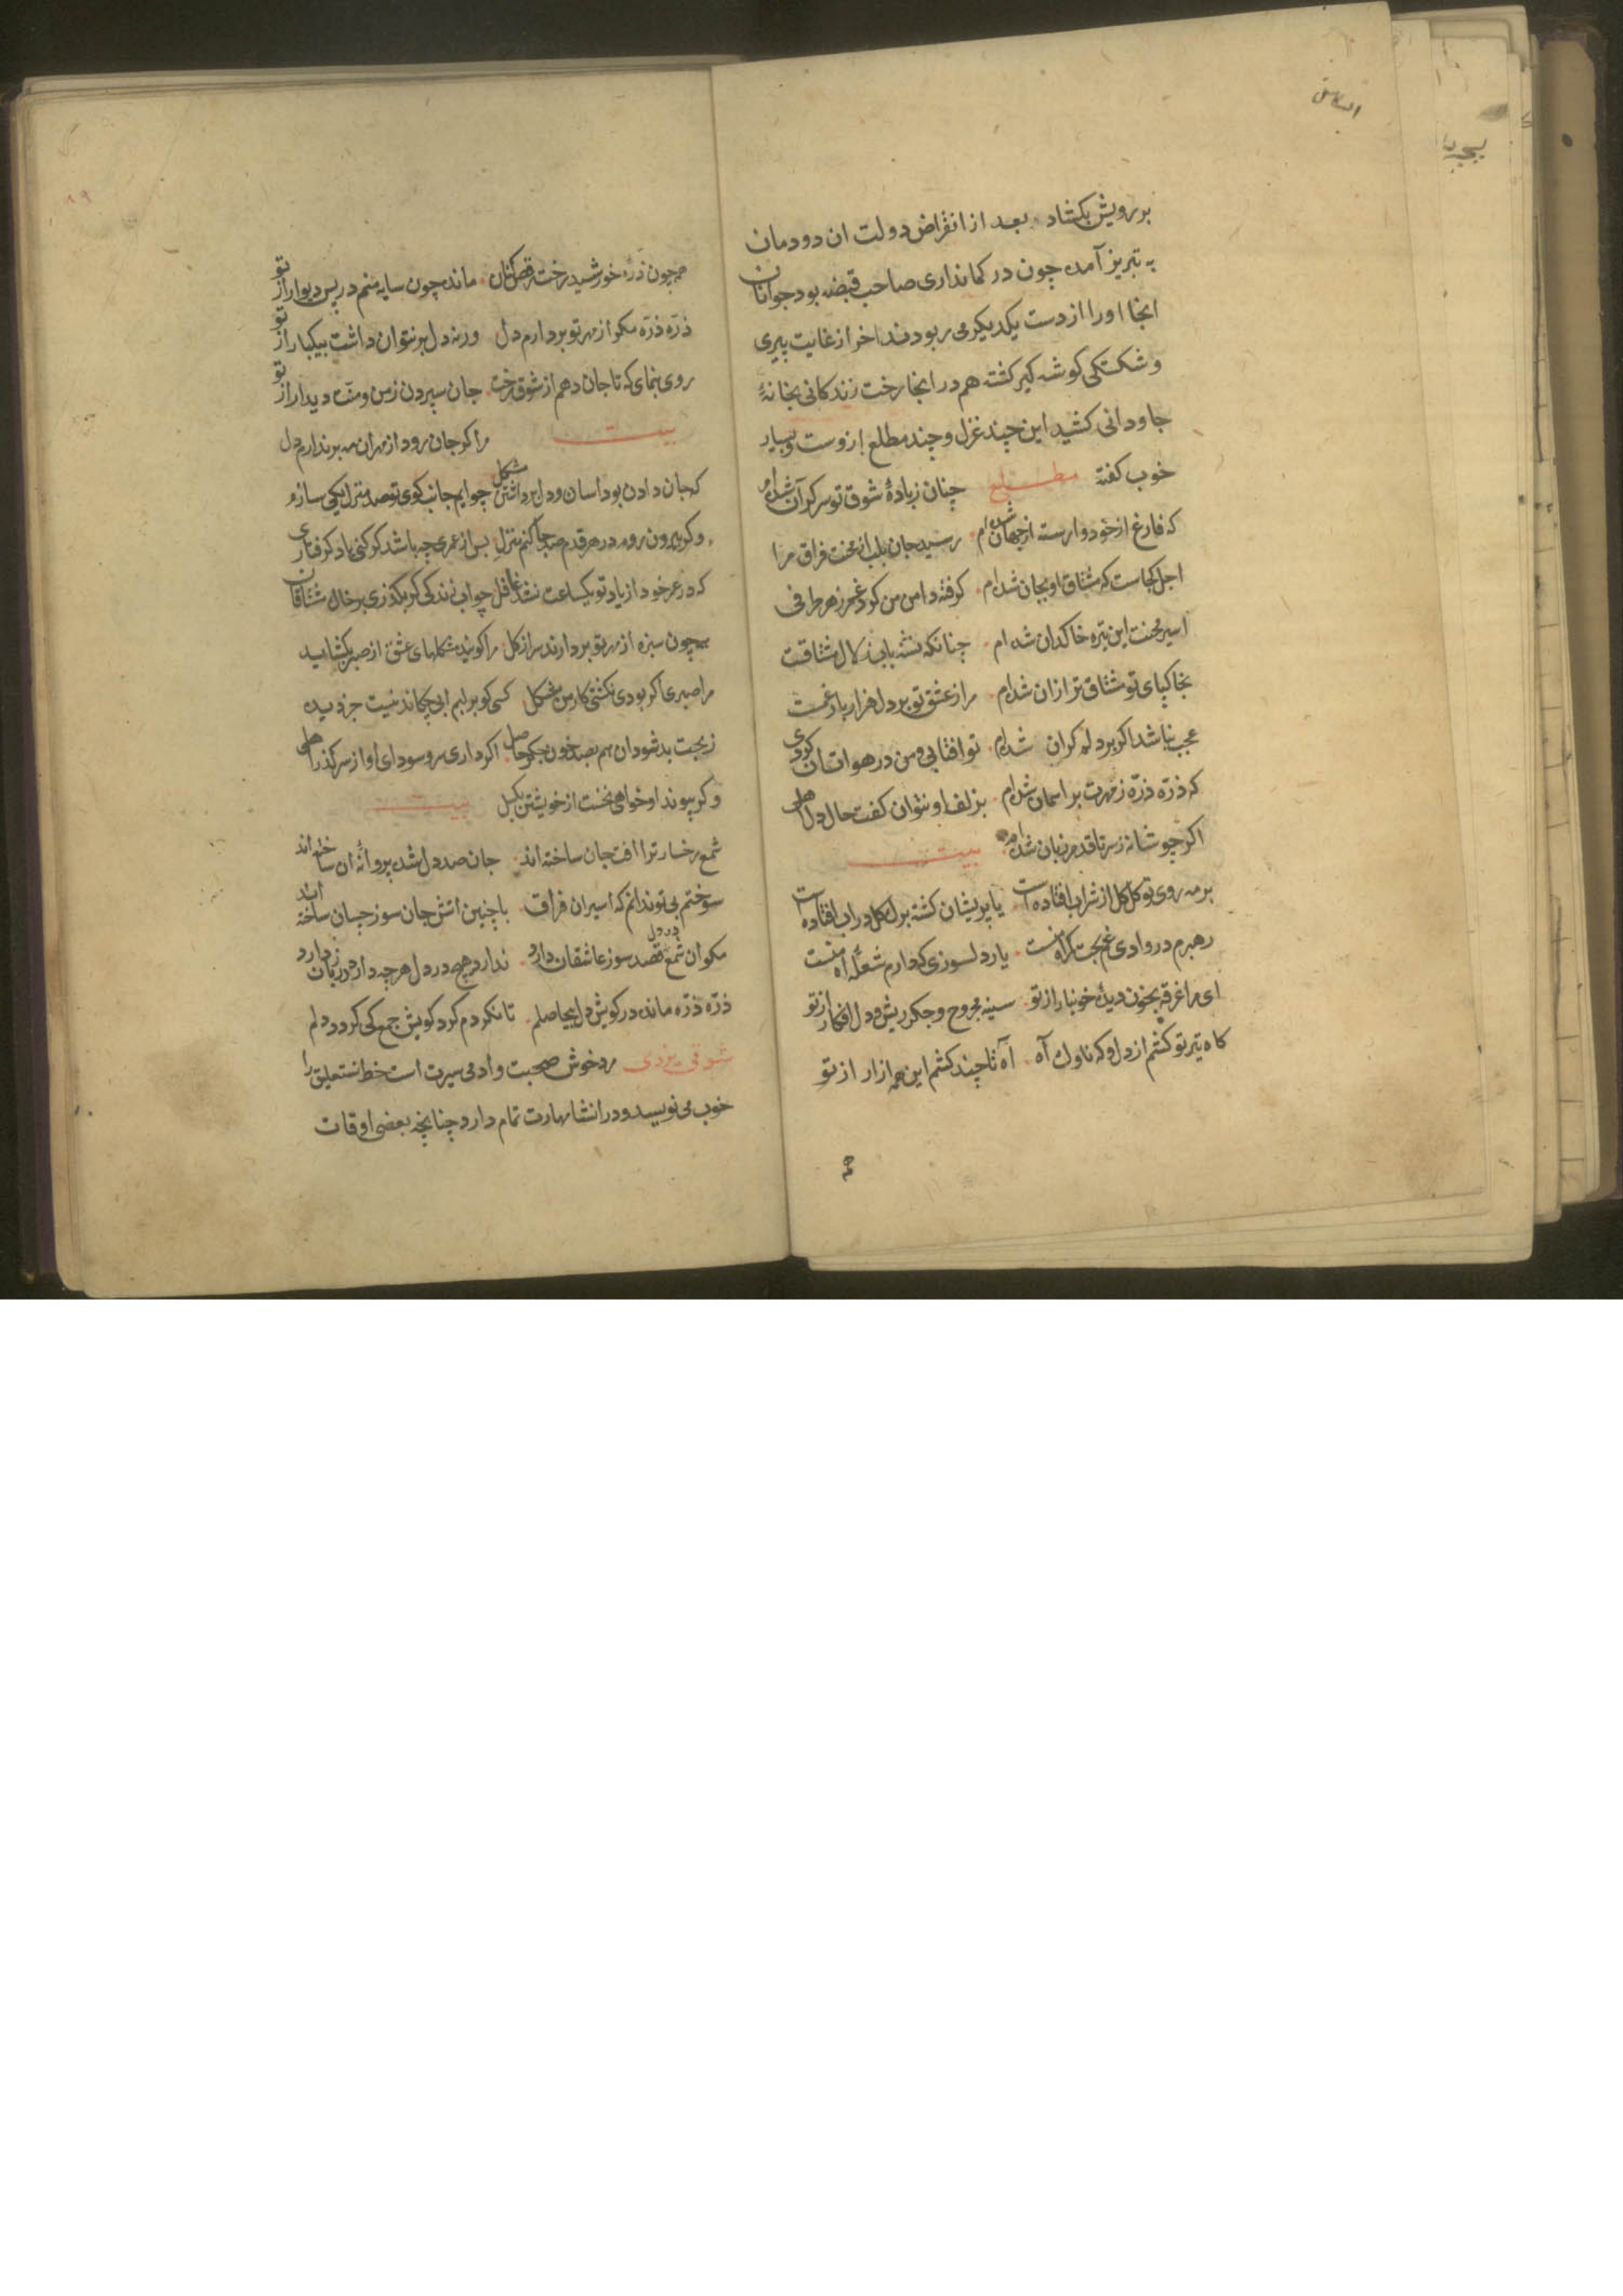 بر رویش بکشاد بعد از انقراض دولت ان دودمان
به تبریز آمده چون در کمانداری صاحب قبضه بود جوانان
انجا اورا از دست یکدیکر می ربودند اخر از غایت پیری
و شکستکی کوشه کیر کشته هم در انجا رخت زندکانی بخانهٔ
جاودانی کشید این چند غزل و چند مطلع ازوست و بسیار
خوب کفته مطلع چنان زبادهٔ شوق تو سرکران شده ام
که فارغ از خود و وارسته از جهان شده ام رسید جان بلب از محنت فراق مرا
اجل کجاست که مشتاق او بجان شده ام کرفته دامن من کرد غم ز هر طرفی
اسیر محنت این تیره خاکدان شده ام چنانکه تشنه باب زلال مشتاقست
بخاکپای تو مشتاق تر ازان شده ام مرا ز عشق تو بر دل هزار بار غمست
عجب نباشد اکر بر دلم کران شده ام تو افتابی و من در هوات ان کردی
که ذرّه ذرّه ز مهرت بر اسمان شده ام بزلف او نتوان کفت حال دل اهلی
اکر چو شانه ز سر تا قدم زبان شده ام بیت
بر مه روی تو کل کل از شراب افتاده است یا پریشان کشته برک کل در اب افتاده است
رهبرم در وادی غم بخت کمراه منست یار دلسوزی که دارم شعلهٔ اه منست
ای مرا غرقه بخون دیدهٔ خونبار از تو سینه مجروح و جکر ریش و دل افکار از تو
کاه تیر تو کشم از دل و که ناوک آه آه تا چند کشم این همه ازار از تو
همچون ذرّه خورشید رخت رقص کنان مانده چون سایه منم در پس دیوار از تو
ذرّه ذرّه مکو از مهر تو بردارم دل ورنه دل بر نتوان داشت بیکبار از تو
روی بنمای که تا جان دهم از شوق رخت جان سپردن ز من و منت دیدار از تو
بیت مرا کر جان رود از مهر ان مه برندارم دل
که جان دادن بود اسان و دل برداشتن مشکل چو ایم جانب کوی تو صد منزل یکی سازم
و کر بیرون روم در هر قدم صد جا کنم منزل پس از عمری چه باشد کر کنی یاد کرفتاری
که در عمر خود از یاد تو یکساعت نشد غافل چو اب زندکی کر بکذری بر خاک مشتاقان
همچون سبزه از مهر تو بردارند سر از کل مرا کویند مشکلهای عشق از صبر بکشاید
مرا صبری اکر بودی نکشتی کار من مشکل کسی کو بر لبم ابی چکاند نیست جز دیده
ز بخت بد شود ان هم بصد خون جکر حاصل اکر داری سر و سودای او از سر کذر اهلی
و کر پیوند او خواهی نخست از خویشتن بکسل بیت
شمع رخسار ترا افت جان ساخته اند جان صد دل شده پروانهٔ ان ساخته اند
سوختم بی تو ندانم که اسیران فراق با چنین اتش جان سوز چسان ساخته اند
مکو ان شمع قصد سوز عاشقان در دل دارد ندارد هیچ در دل هر چه دارد در زبان دارد
ذرّه ذرّه مانده در کویش دل بیحاصلم تا نکردم کرد کویش جمع کی کردد دلم
شوقی یزدی مرد خوش صحبت و ادمی سیرت است خط نستعلیق را
خوب می نویسد و در انشا مهارت تمام دارد چنانچه بعضی اوقات